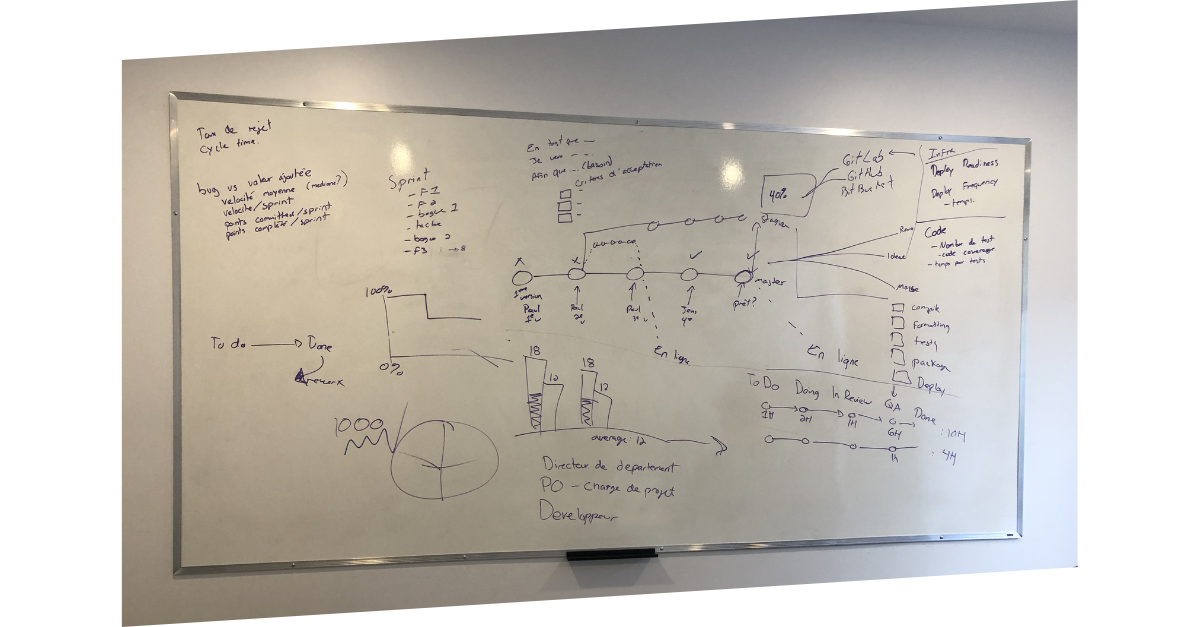 Taux de rejet
Cycle time.
bug vs valeur ajoutée
velocité moyenne (mediane?)
velocité/sprint
points committed/sprint
points complété/sprint
Sprint
- F1
- F2
- bogue 1
- tache
- bogue 2
- F3 1 → 8
En tant que —
Je veux - - -
Afin que --- (besoin)
Criteres d'acceptation
40%
GitLab
GitHub
BitBucket
Infra
Deploy Readiness
Deploy Frequency
- temps.
Staging
Code
- Nombre de test
- code coverage
- temps par tests
Ideal
master
1ere version
Paul
1e
Paul
2e
Paul
3e
Jens
4e
prêt?
En ligne
En ligne
compile
formatting
tests
package
Deploy
100%
0%
To do → Done
rework
18
12
18
12
average: 12
1000
To Do Doing In Review QA Done
1H 2H 1H 6H : 10H
1H : 4H
Directeur de departement
PO - Charge de projet
Developpeur